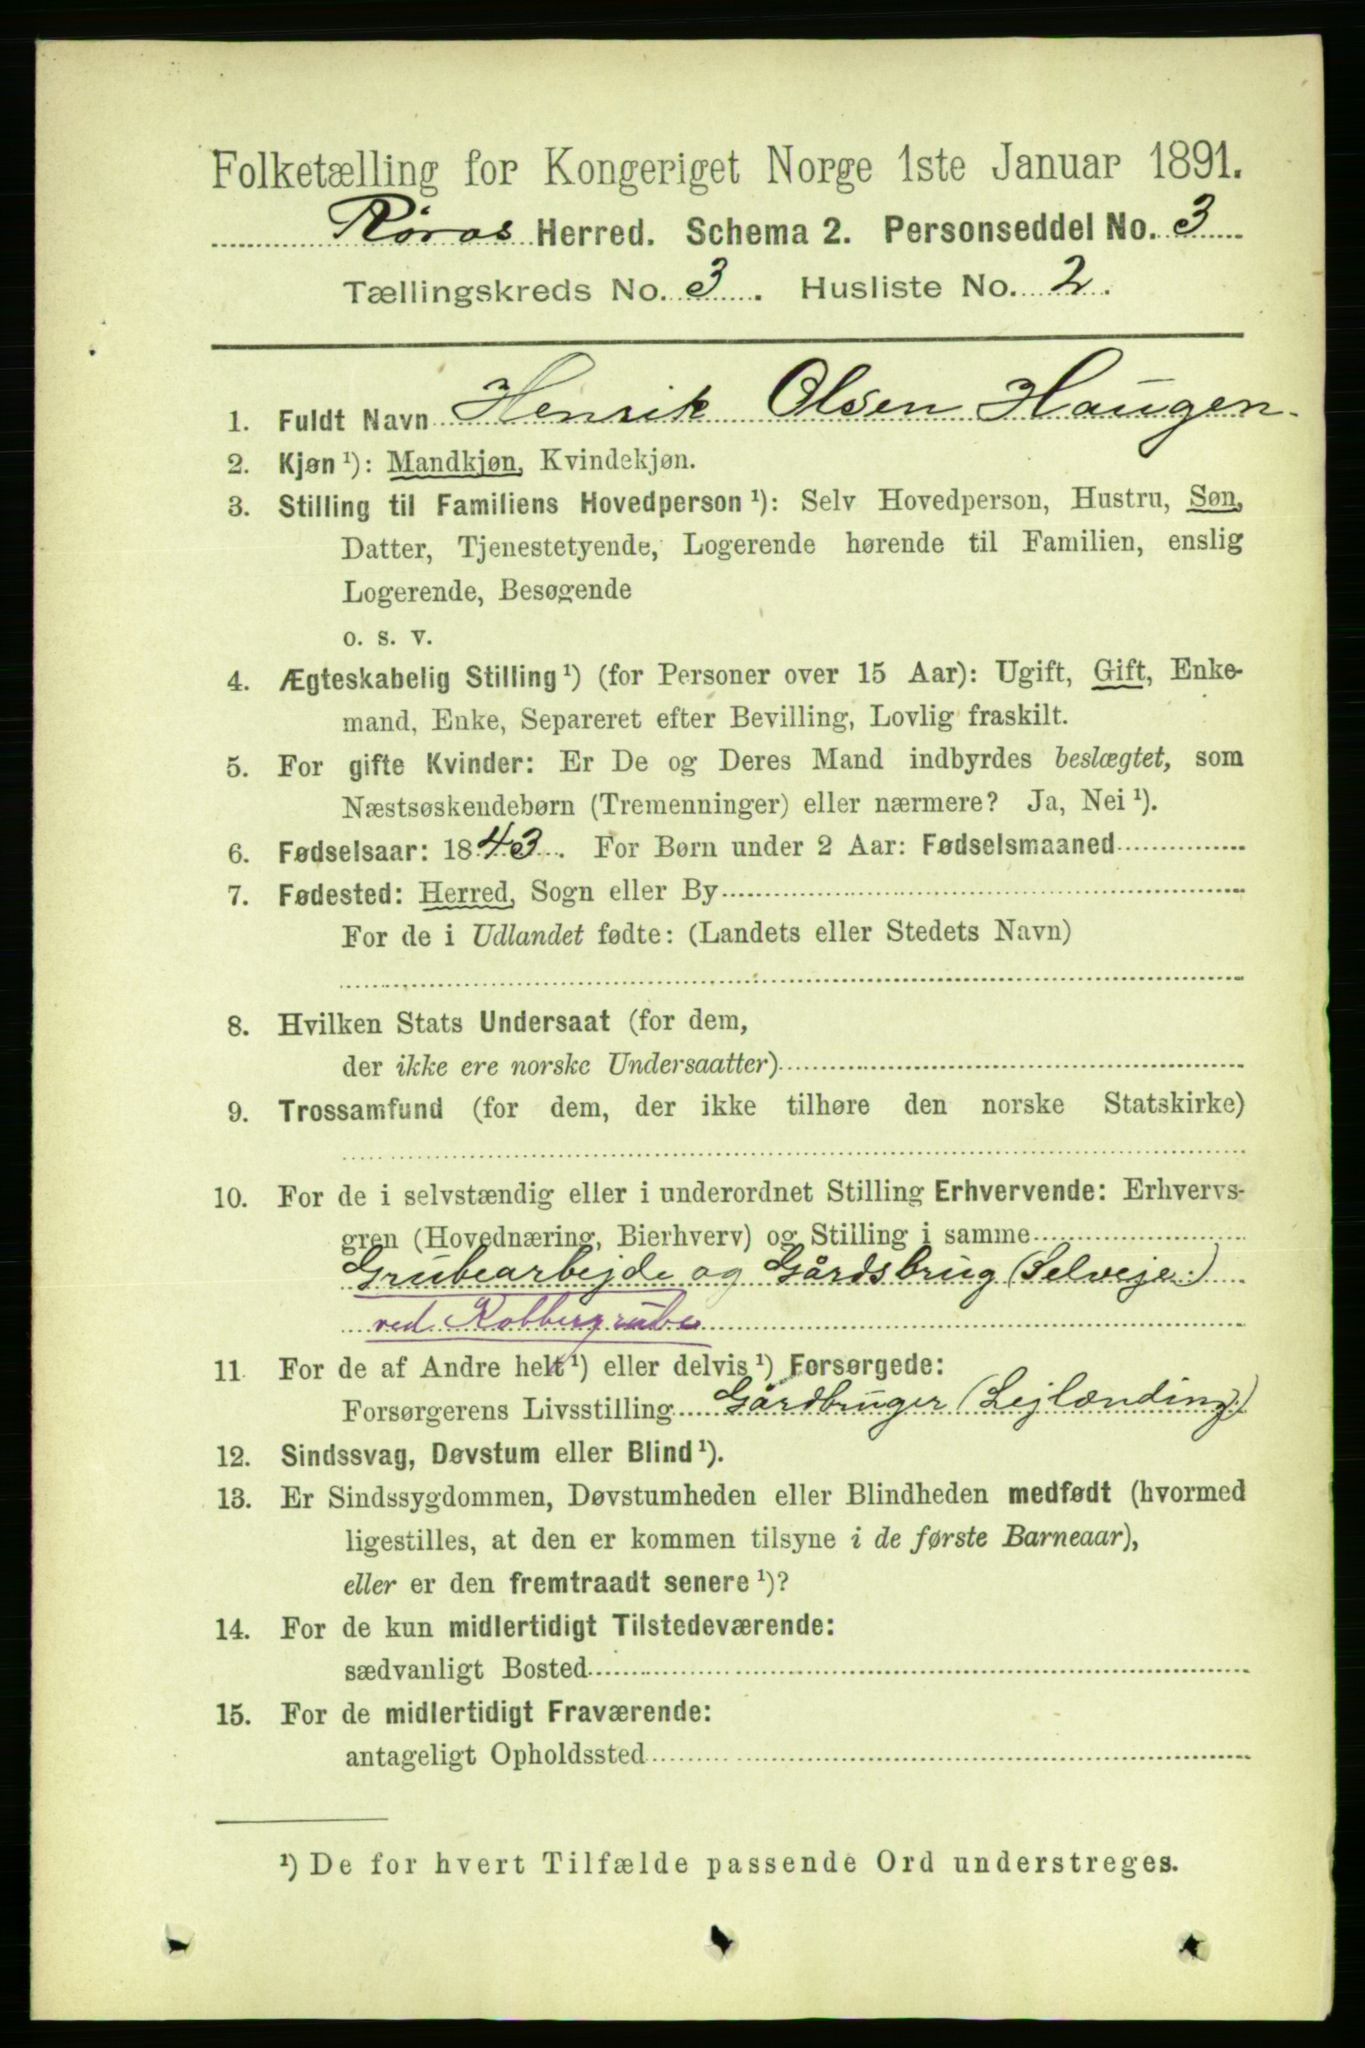 Folketælling for Kongeriget Norge 1ste Januar 1891.
Røros Herred. Schema 2. Personseddel No. 3
Tællingskreds No. 3. Husliste No. 2.
1. Fuldt Navn Henrik Olsen Haugen.
2. Kjøn ¹): Mandkjøn, Kvindekjøn.
3. Stilling til Familiens Hovedperson ¹): Selv Hovedperson, Hustru, Søn,
Datter, Tjenestetyende, Logerende hørende til Familien, enslig
Logerende, Besøgende
o. s. v.
4. Ægteskabelig Stilling ¹) (for Personer over 15 Aar): Ugift, Gift, Enke-
mand, Enke, Separeret efter Bevilling, Lovlig fraskilt.
5. For gifte Kvinder: Er De og Deres Mand indbyrdes beslægtet, som
Næstsøskendebørn (Tremenninger) eller nærmere? Ja, Nei ¹).
6. Fødselsaar: 1843. For Børn under 2 Aar: Fødselsmaaned
7. Fødested: Herred, Sogn eller By
For de i Udlandet fødte: (Landets eller Stedets Navn)
8. Hvilken Stats Undersaat (for dem,
der ikke ere norske Undersaatter)
9. Trossamfund (for dem, der ikke tilhøre den norske Statskirke)
10. For de i selvstændig eller i underordnet Stilling Erhvervende: Erhvervs-
gren (Hovednæring, Bierhverv) og Stilling i samme
Grubearbejde og Gårdsbrug (Selveje.)
ved Kobbergrube
11 For de af Andre helt ¹) eller delvis ¹) Forsørgede:
Forsørgerens Livsstilling Gårdbruger (Lejlænding.)
12. Sindssvag, Døvstum eller Blind ¹).
13. Er Sindssygdommen, Døvstumheden eller Blindheden medfødt (hvormed
ligestilles, at den er kommen tilsyne i de første Barneaar),
eller er den fremtraadt senere ¹)?
14. For de kun midlertidigt Tilstedeværende:
sædvanligt Bosted
15. For de midlertidigt Fraværende:
antageligt Opholdssted
¹) De for hvert Tilfælde passende Ord understreges.